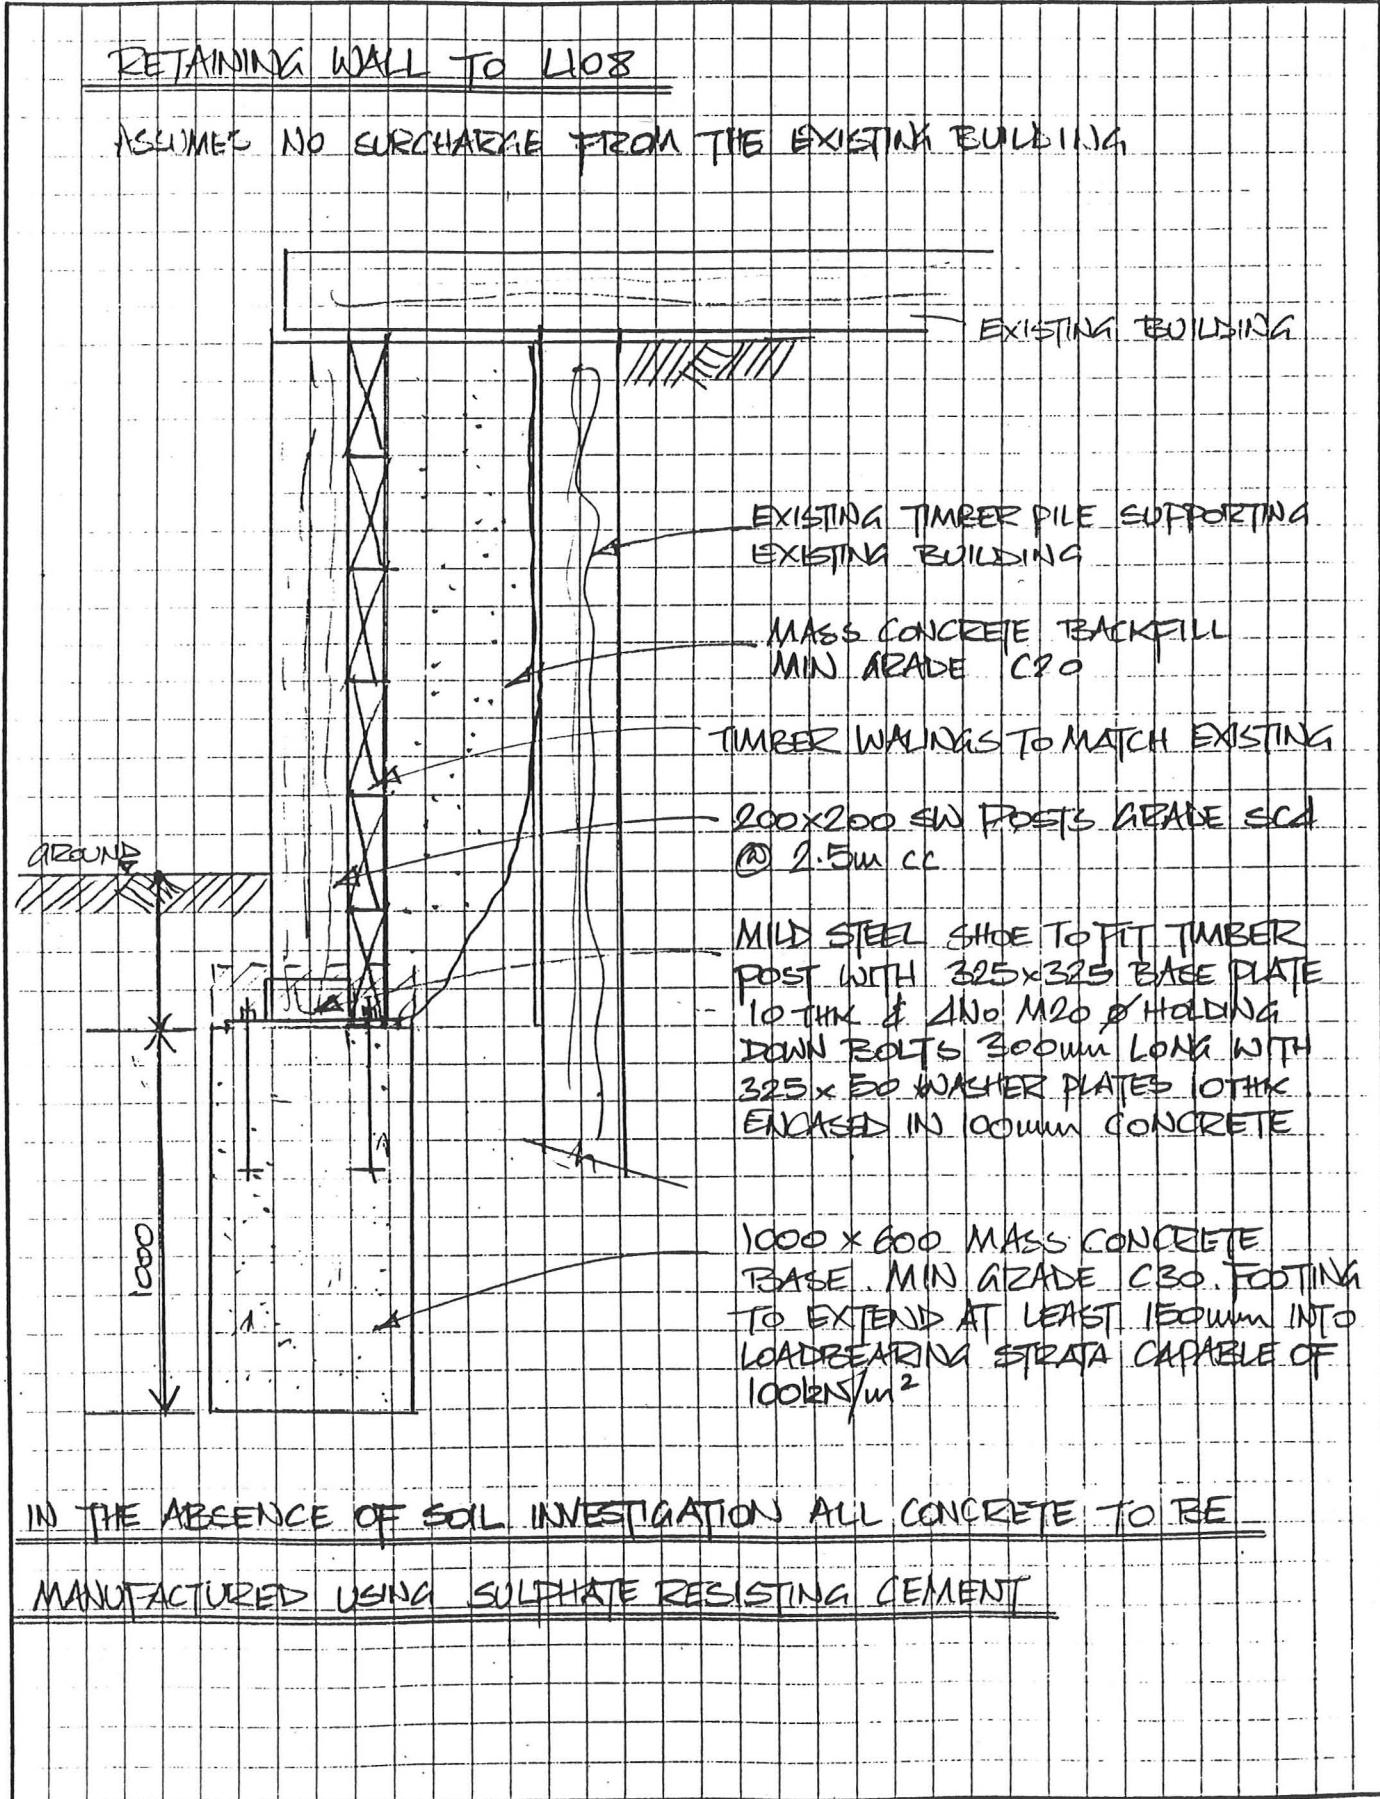 RETAINING WALL TO U108
ASSUMES NO SURCHARGE FROM THE EXISTING BUILDING
EXISTING BUILDING
EXISTING TIMBER PILE SUPPORTING
EXISTING BUILDING
MASS CONCRETE BACKFILL
MIN GRADE C20
TIMBER WALINGS TO MATCH EXISTING
200x200 SW POSTS GRADE SC4
@ 2.5m cc
GROUND
MILD STEEL SHOE TO FIT TIMBER
POST WITH 325x325 BASE PLATE
10 THK & 4No M20 Ø HOLDING
DOWN BOLTS 300mm LONG WITH
325 x 50 WASHER PLATES 10THK
ENCASED IN 100mm CONCRETE
1000
1000 x 600 MASS CONCRETE
BASE. MIN GRADE C30. FOOTING
TO EXTEND AT LEAST 150mm INTO
LOADBEARING STRATA CAPABLE OF
100kN/m²
IN THE ABSENCE OF SOIL INVESTIGATION ALL CONCRETE TO BE
MANUFACTURED USING SULPHATE RESISTING CEMENT